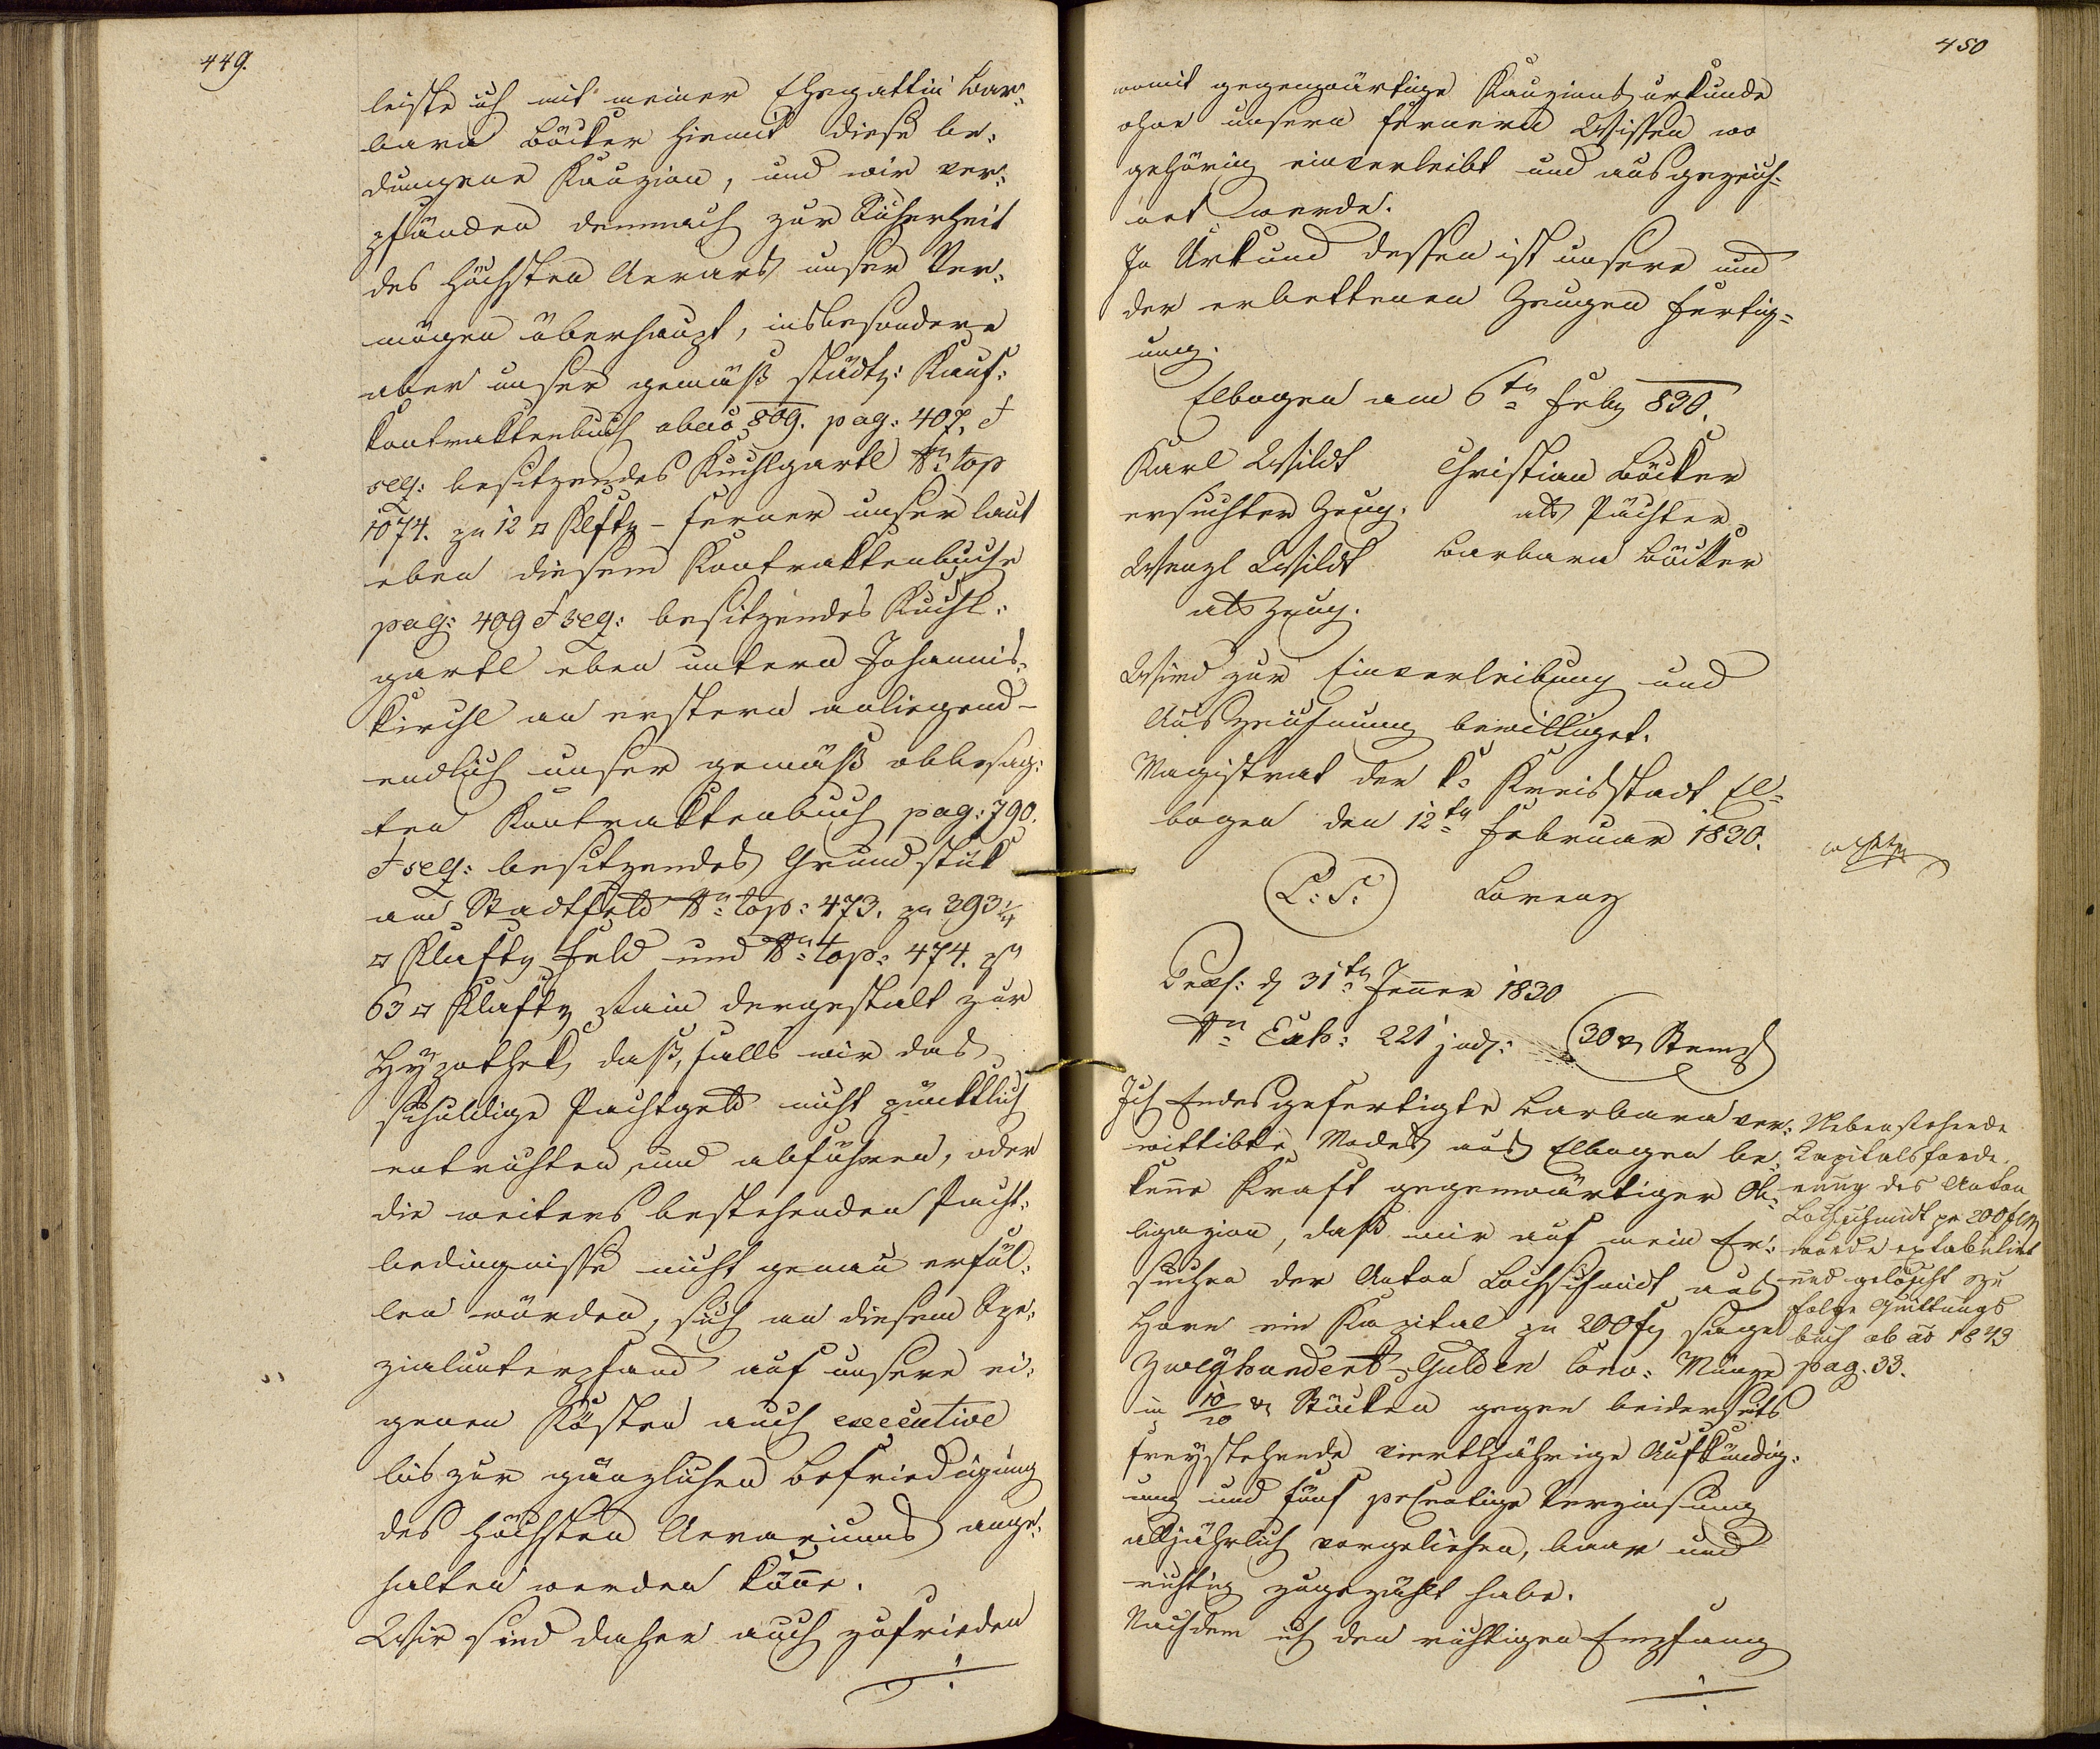 449.
leiste ich mit meiner Ehegattin Bar¬
bara Böcker hiemit diese be¬
dungene Kauzion, und wir ver¬
pfänden demnach zur Sicherheit
des höchsten Aerars unser Ver¬
mögen überhaupt, insbesondere
aber unser gemäß städt: Kauf¬
kontraktenbuch abaõ 809. pag: 407. et
seq: besitzendes Kuchlgartl Nro top
1074. zu 12 □ Klftr – ferner unser laut
eben diesem Kontraktenbuche
pag: 409 et seq: besitzendes Kuchl¬
gartl eben untern Johannis¬
kirchl an erstern anliegend –
endlich unser gemäß obbesag¬
ten Kontraktenbuch pag: 790.
et seq: besitzendes Grundstük
am Stadtfeld Nro top: 473. zu 393 ¼
□ Klaftr Feld und Nro top: 474. zu
63 □ Klaftr Rain dergestalt zur
Hypothek, daß, falls wir das
schuldige Pachtgeld nicht pünktlich
entrichten und abführen, oder
die weiters bestehenden Pacht¬
bedingnisse nicht genau erfül¬
len würden, sich an diesem Spe¬
zialunterpfand auf unsere ei¬
genen Kösten auch executive
bis zur gänzlichen Befriedigung
des höchsten Aerariums ange¬
halten werden könne.
Wir sind daher auch zufrieden
./.
450
womit gegenwärtige Kauzionsurkunde
ohne unsern fernern Wissen wo
gehörig einverleibt und ausgezeich¬
net werde.
In Urkund dessen ist unsere und
der erbettenen Zeugen Fertig¬
ung.
Elbogen am 6tn Febr 830.
Karl Wildt Christian Böcker
ersuchter Zeug. als Pächter
Wenzl Wildt Barbara Böcker
als Zeug.
Wird zur Einverleibung und
Auszeichnung bewilliget.
Magistrat der k: Kreisstadt El¬
bogen den 12tn Februar 1830.
L: S. Lorenz
Praes: d 31tn Jenner 1830
Nro Exh: 221 jud: 30 xr Stempl
Ich Endesgefertigte Barbara ver¬
wittibte Mades aus Elbogen be¬
kenne Kraft gegenwärtiger Ob¬
ligazion, daß mir auf mein Er¬
suchen der Anton Lochschmidt aus
Horn ein Kapital zu 200 fr sage
Zweyhundert Gulden Conv: Münze
in 10/20 xr Stücken gegen beiderseits
freystehende vierteljährige Aufkündig¬
ung und fünf percentige Verzinsung
alljährlich vorgeliehen, baar und
richtig zugezählt habe.
Nachdem ich den richtigen Empfang
./.
Nebenstehende
Kapitalsforde¬
rung des Anton
Lochschmidt pr 200 f CM
wurde extabulirt
und gelöscht zu
folge Quittungs
buch ab aõ 1843
pag. 33.